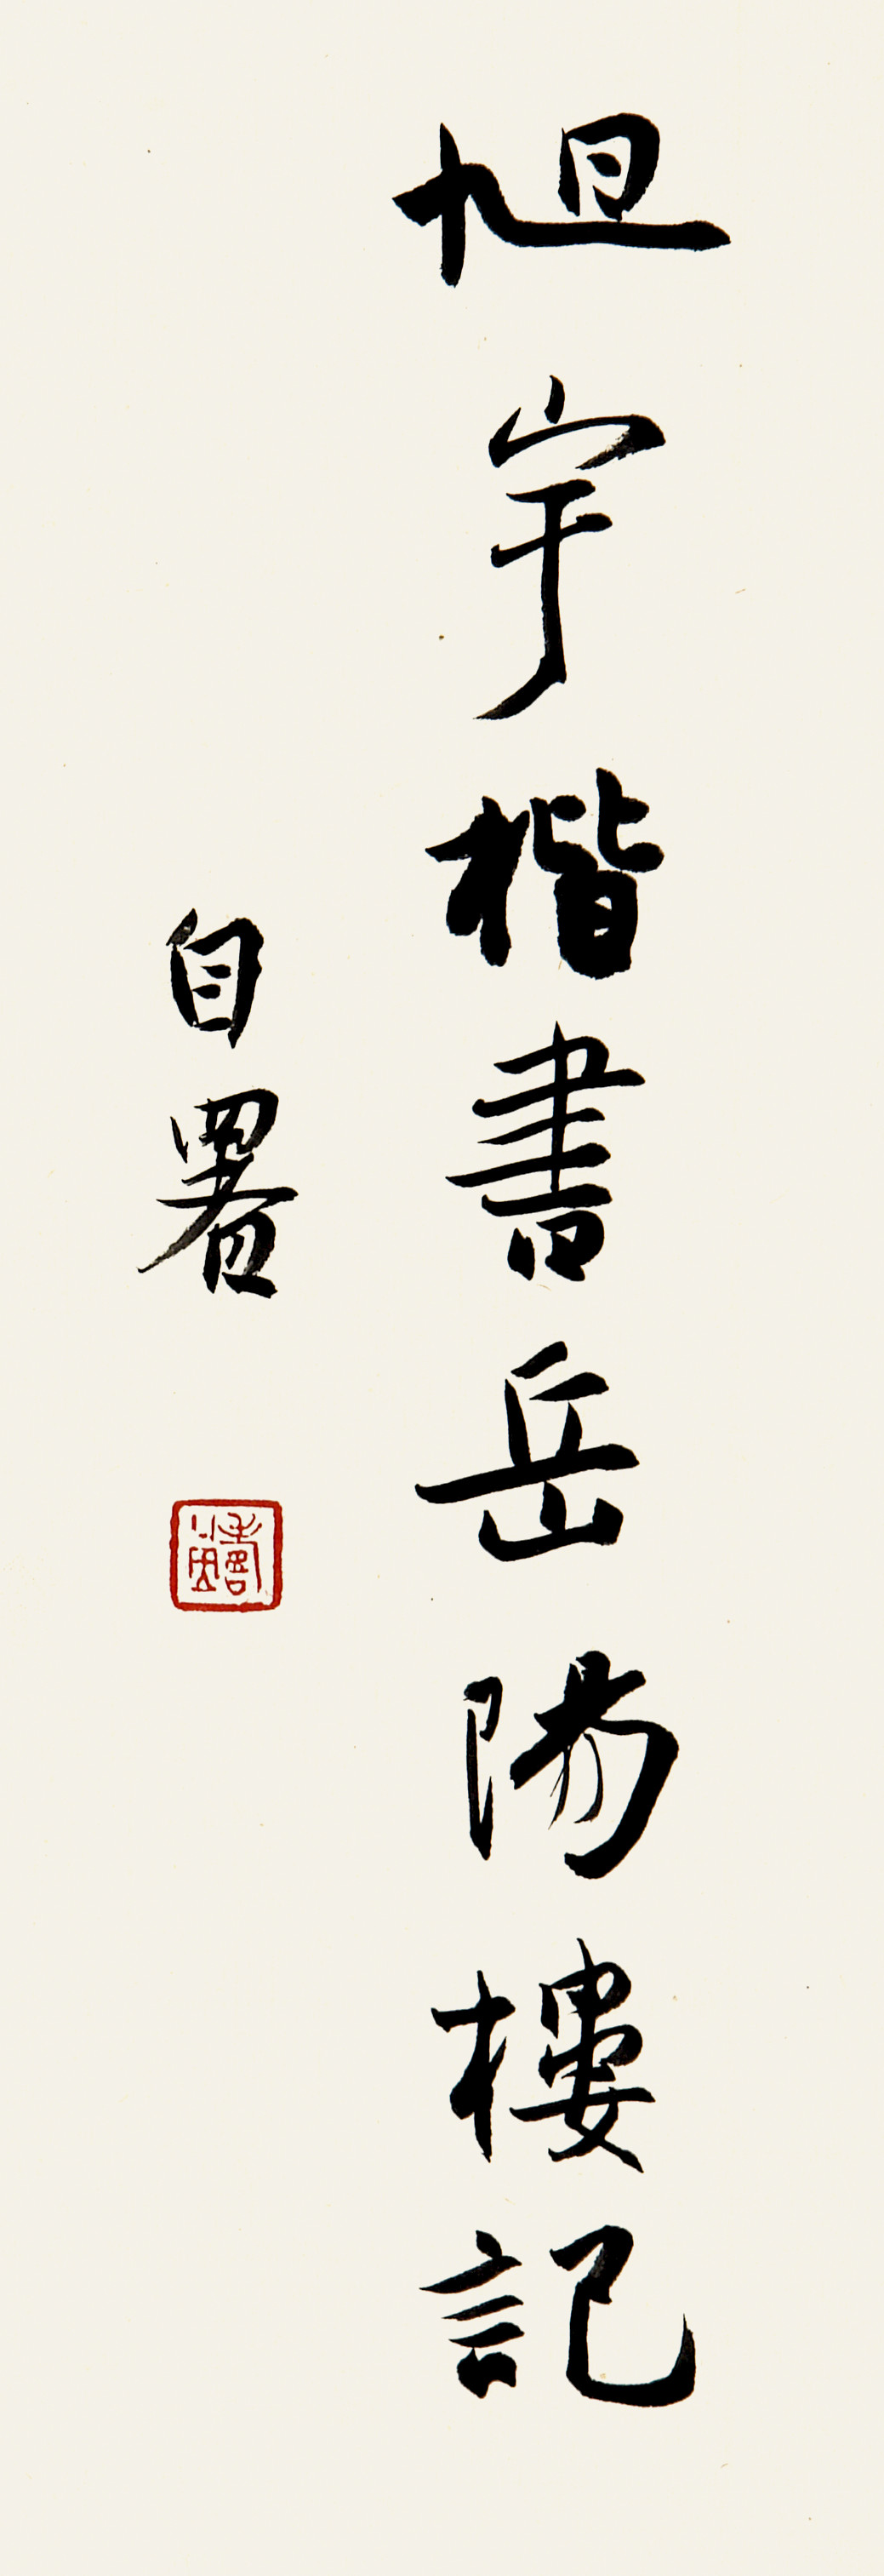 旭宇楷書岳陽樓記
自署